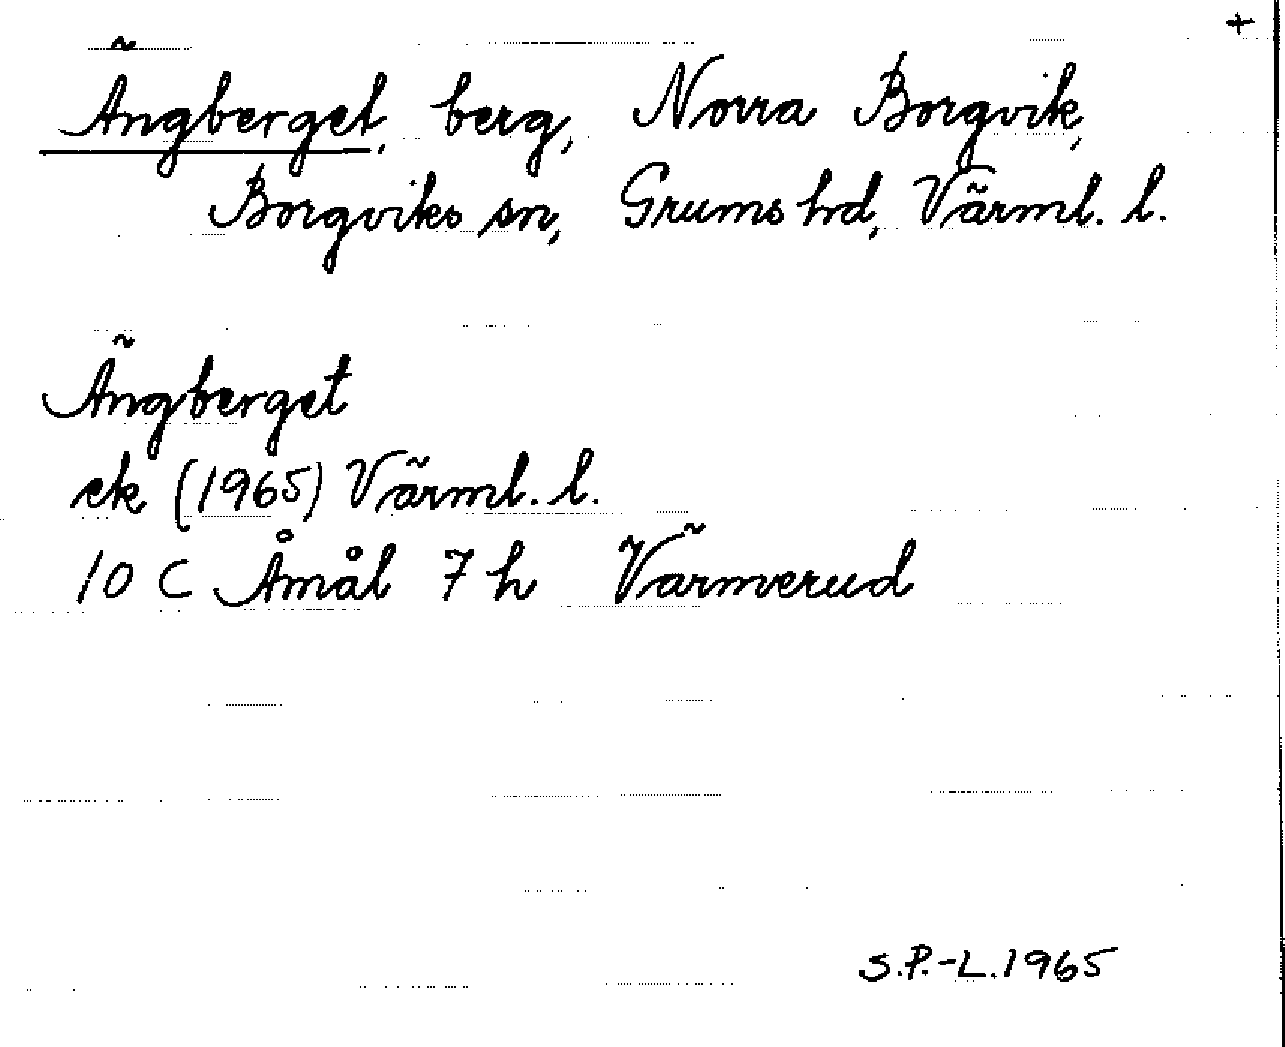 +
Ängberget, berg, Norra Borgvik,
Borgviks sn, Grums hd, Värml. l.
Ängberget
ek (1965) Värml. l.
10 C Åmål 7 h Värmverud
S.P.-L. 1965